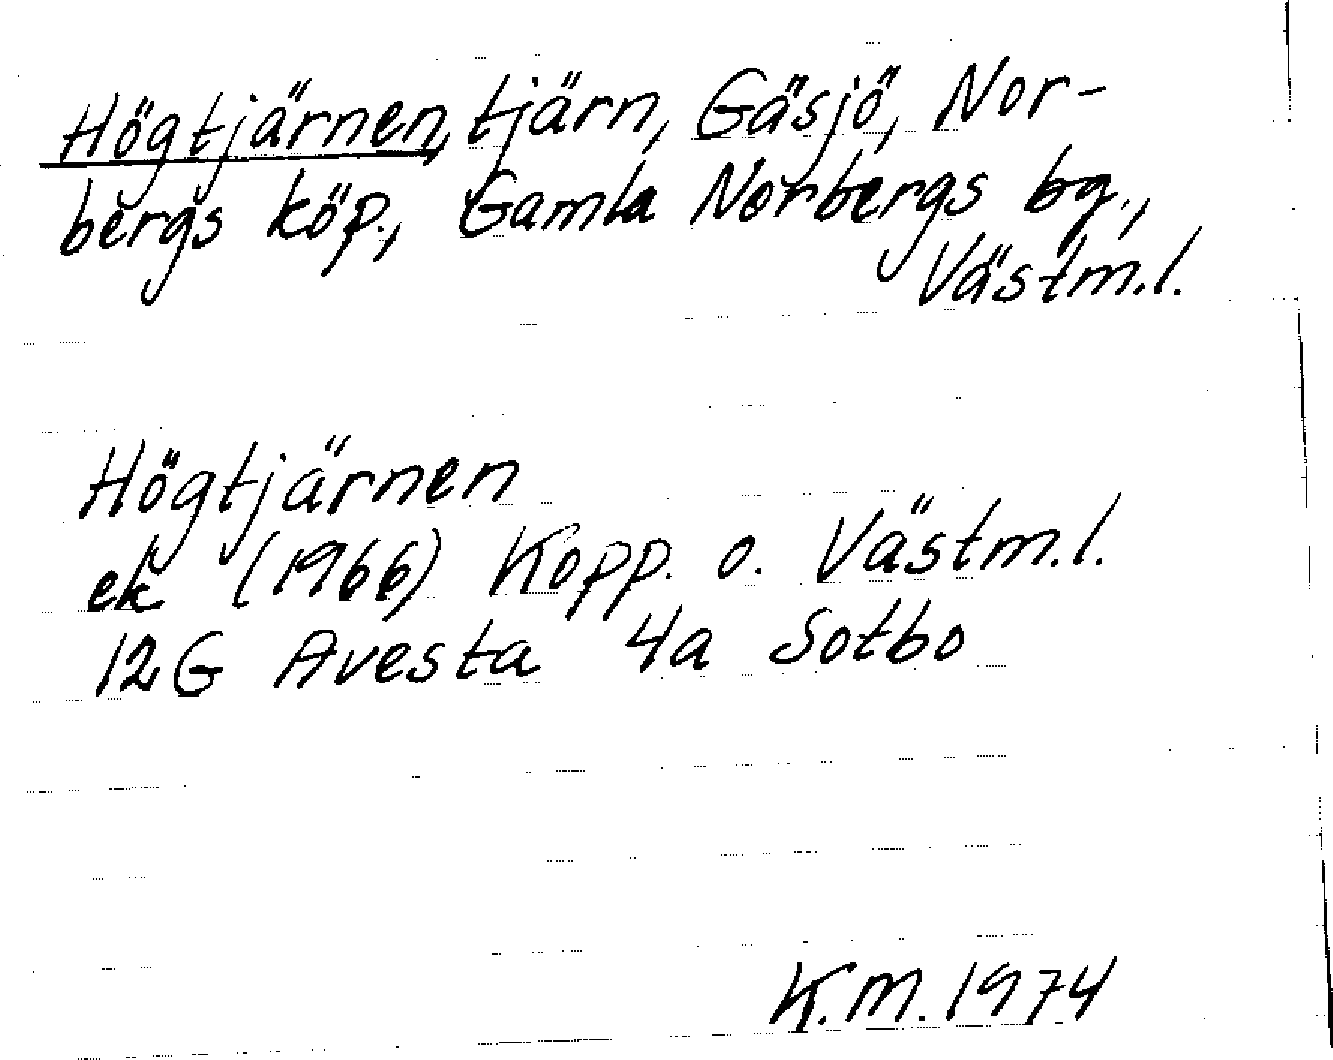 Högtjärnen, tjärn, Gäsjö, Nor-
bergs köp., Gamla Norbergs bg.,
Västm.l.
Högtjärnen
ek (1966) Kopp. o. Västm.l.
12G Avesta 4a Sotbo
K.M. 1974